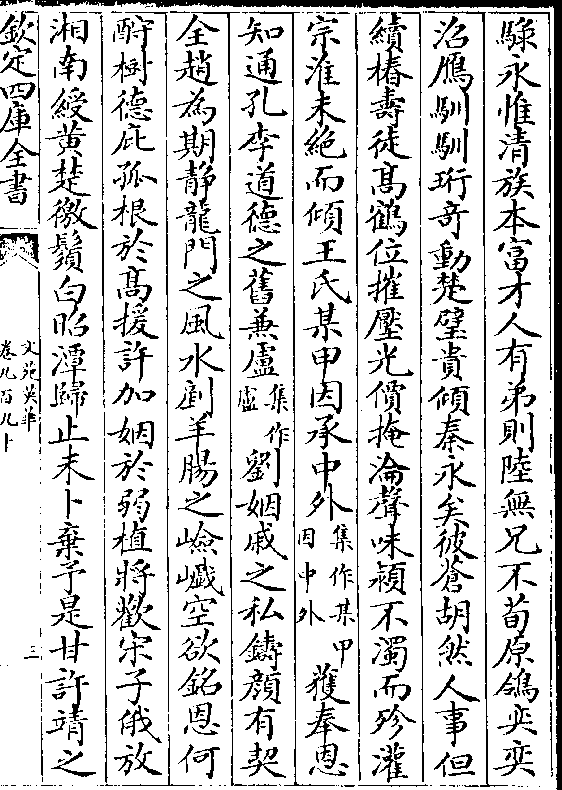 騄永惟清族本富才人有弟則陸無兄不荀原鴒奕奕
沼鴈馴馴珩奇動楚璧貴傾秦永矣彼蒼胡然人事但
續椿壽徒髙鶴位摧壓光價掩淪聲味潁不濁而殄灌
宗淮未絶而傾王氏某甲因承中外集作某甲因中外獲奉恩
知通孔李道德之舊兼盧集作盧劉姻戚之私鑄顔有契
全趙為期静龍門之風水剷羊腸之嶮巇空欲銘恩何
酧樹德庇孤根於髙援許加姻於弱植將歡宋子俄放
湘南綬黄楚徼鬚白昭潭歸止未卜棄予是甘許靖之
欽定四庫全書
文苑英華
卷九百九十
三